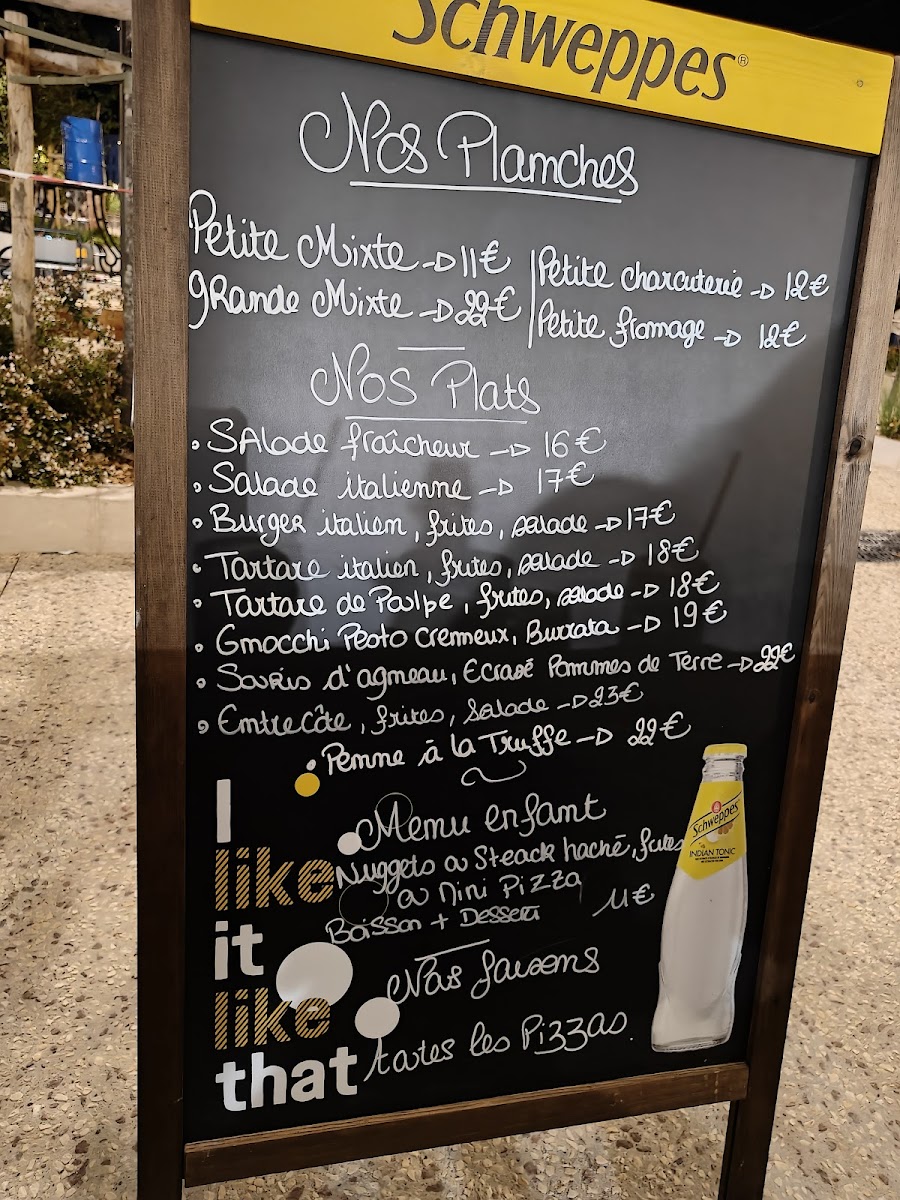 Schweppes®
Nos Planches
Petite Mixte → 11€
Petite charcuterie → 12€
gRande Mixte → 22€
Petite fromage → 12€
Nos Plats
• SAlade fraîcheur → 16€
• Salade italienne → 17€
• Burger italien, frites, salade → 17€
• Tartare italien, frites, salade → 18€
• Tartare de Poulpe, frites, salade → 18€
• Gnocchi Pesto Crémeux, Burrata → 19€
• Souris d'agneau, Ecrasé Pommes de Terre → 22€
• Entrecôte, frites, Salade → 23€
• Penne à la Truffe → 22€
Menu enfant
Nuggets ou Steack haché, frites
ou Mini Pizza
Boisson + Dessert 11€
Nous faisons
toutes les Pizzas.
I
like
it
like
that
Schweppes
INDIAN TONIC